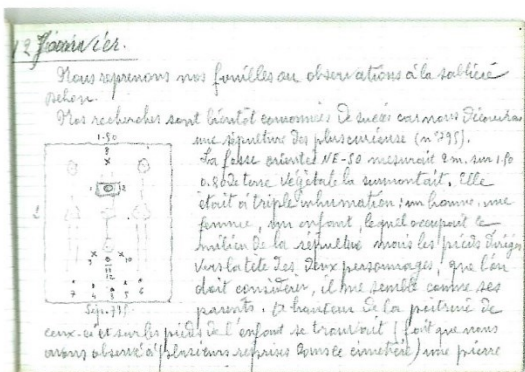 12 Janvier.
Nous reprenons nos fouilles ou observations à la sablière
Pehon.
Nos recherches sont bientôt couronnées de succès car nous découvrons
une sépulture des plus curieuse (n° 795).
La fosse orientée NE-SO mesurait 2 m. sur 1.50
0.80 de terre végétale la surmontait. Elle
était à triple inhumation : un homme, une
femme, un enfant, lequel occupait le
milieu de la sépulture mais les pieds dirigés
vers la tête des deux personnages, que l'on
doit considérer, il me semble comme ses
parents. A hauteur de la poitrine de
ceux-ci et sur les pieds de l'enfant se trouvait (fait que nous
avons observé à plusieurs reprises dans ce cimetière) une pierre
1.50
8
2
9 10
11
12
7 4 3 5 6
Sép. 795